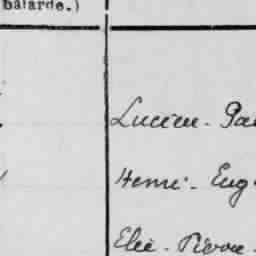 bâtarde.)
Lucien - Pau
Henri - Eug
Elie - Pierre -